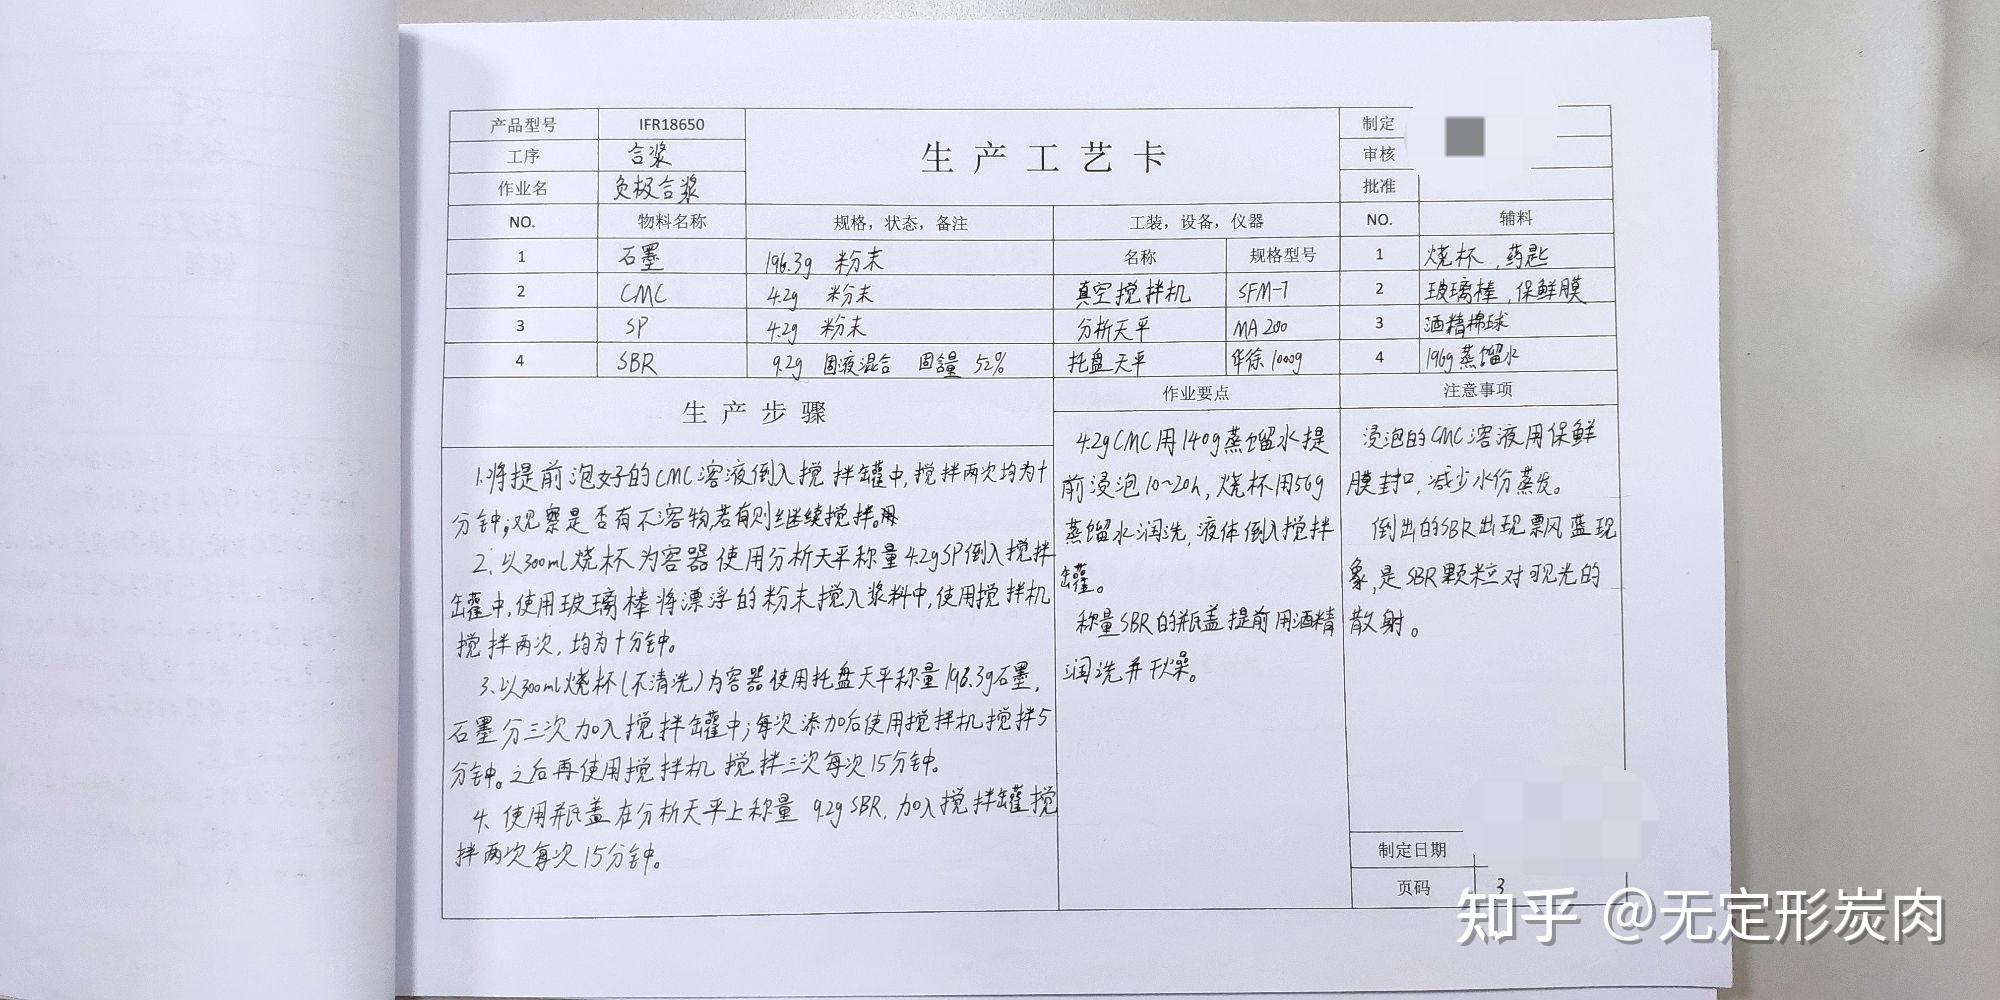 产品型号 IFR18650 生产工艺卡 制定
工序 合浆 审核
作业名 负极合浆 批准
NO. 物料名称 规格，状态，备注 工装，设备，仪器 NO. 辅料
1 石墨 196.3g 粉末 名称 规格型号 1 烧杯，药匙
2 CMC 4.2g 粉末 真空搅拌机 SFM-7 2 玻璃棒，保鲜膜
3 SP 4.2g 粉末 分析天平 MA200 3 酒精棉球
4 SBR 9.2g 固液混合 固含量 52% 托盘天平 华徐1000g 4 196g蒸馏水
生产步骤
1.将提前泡好的CMC溶液倒入搅拌罐中,搅拌两次均为十
分钟;观察是否有不溶物,若有则继续搅拌。
2.以300ml烧杯为容器使用分析天平称量4.2gSP倒入搅拌
罐中,使用玻璃棒将漂浮的粉末搅入浆料中,使用搅拌机
搅拌两次,均为十分钟。
3.以300ml烧杯(不清洗)为容器使用托盘天平称量196.3g石墨,
石墨分三次加入搅拌罐中;每次添加后使用搅拌机搅拌5
分钟。之后再使用搅拌机搅拌三次每次15分钟。
4.使用瓶盖在分析天平上称量 9.2gSBR,加入搅拌罐搅
拌两次每次15分钟。
作业要点
4.2gCMC用140g蒸馏水提
前浸泡10~20h,烧杯用56g
蒸馏水润洗,液体倒入搅拌
罐。
称量SBR的瓶盖提前用酒精
润洗并干燥。
注意事项
浸泡的CMC溶液用保鲜
膜封口,减少水份蒸发。
倒出的SBR出现飘蓝现
象,是SBR颗粒对可见光的
散射。
制定日期
页码 3
知乎 @无定形炭肉